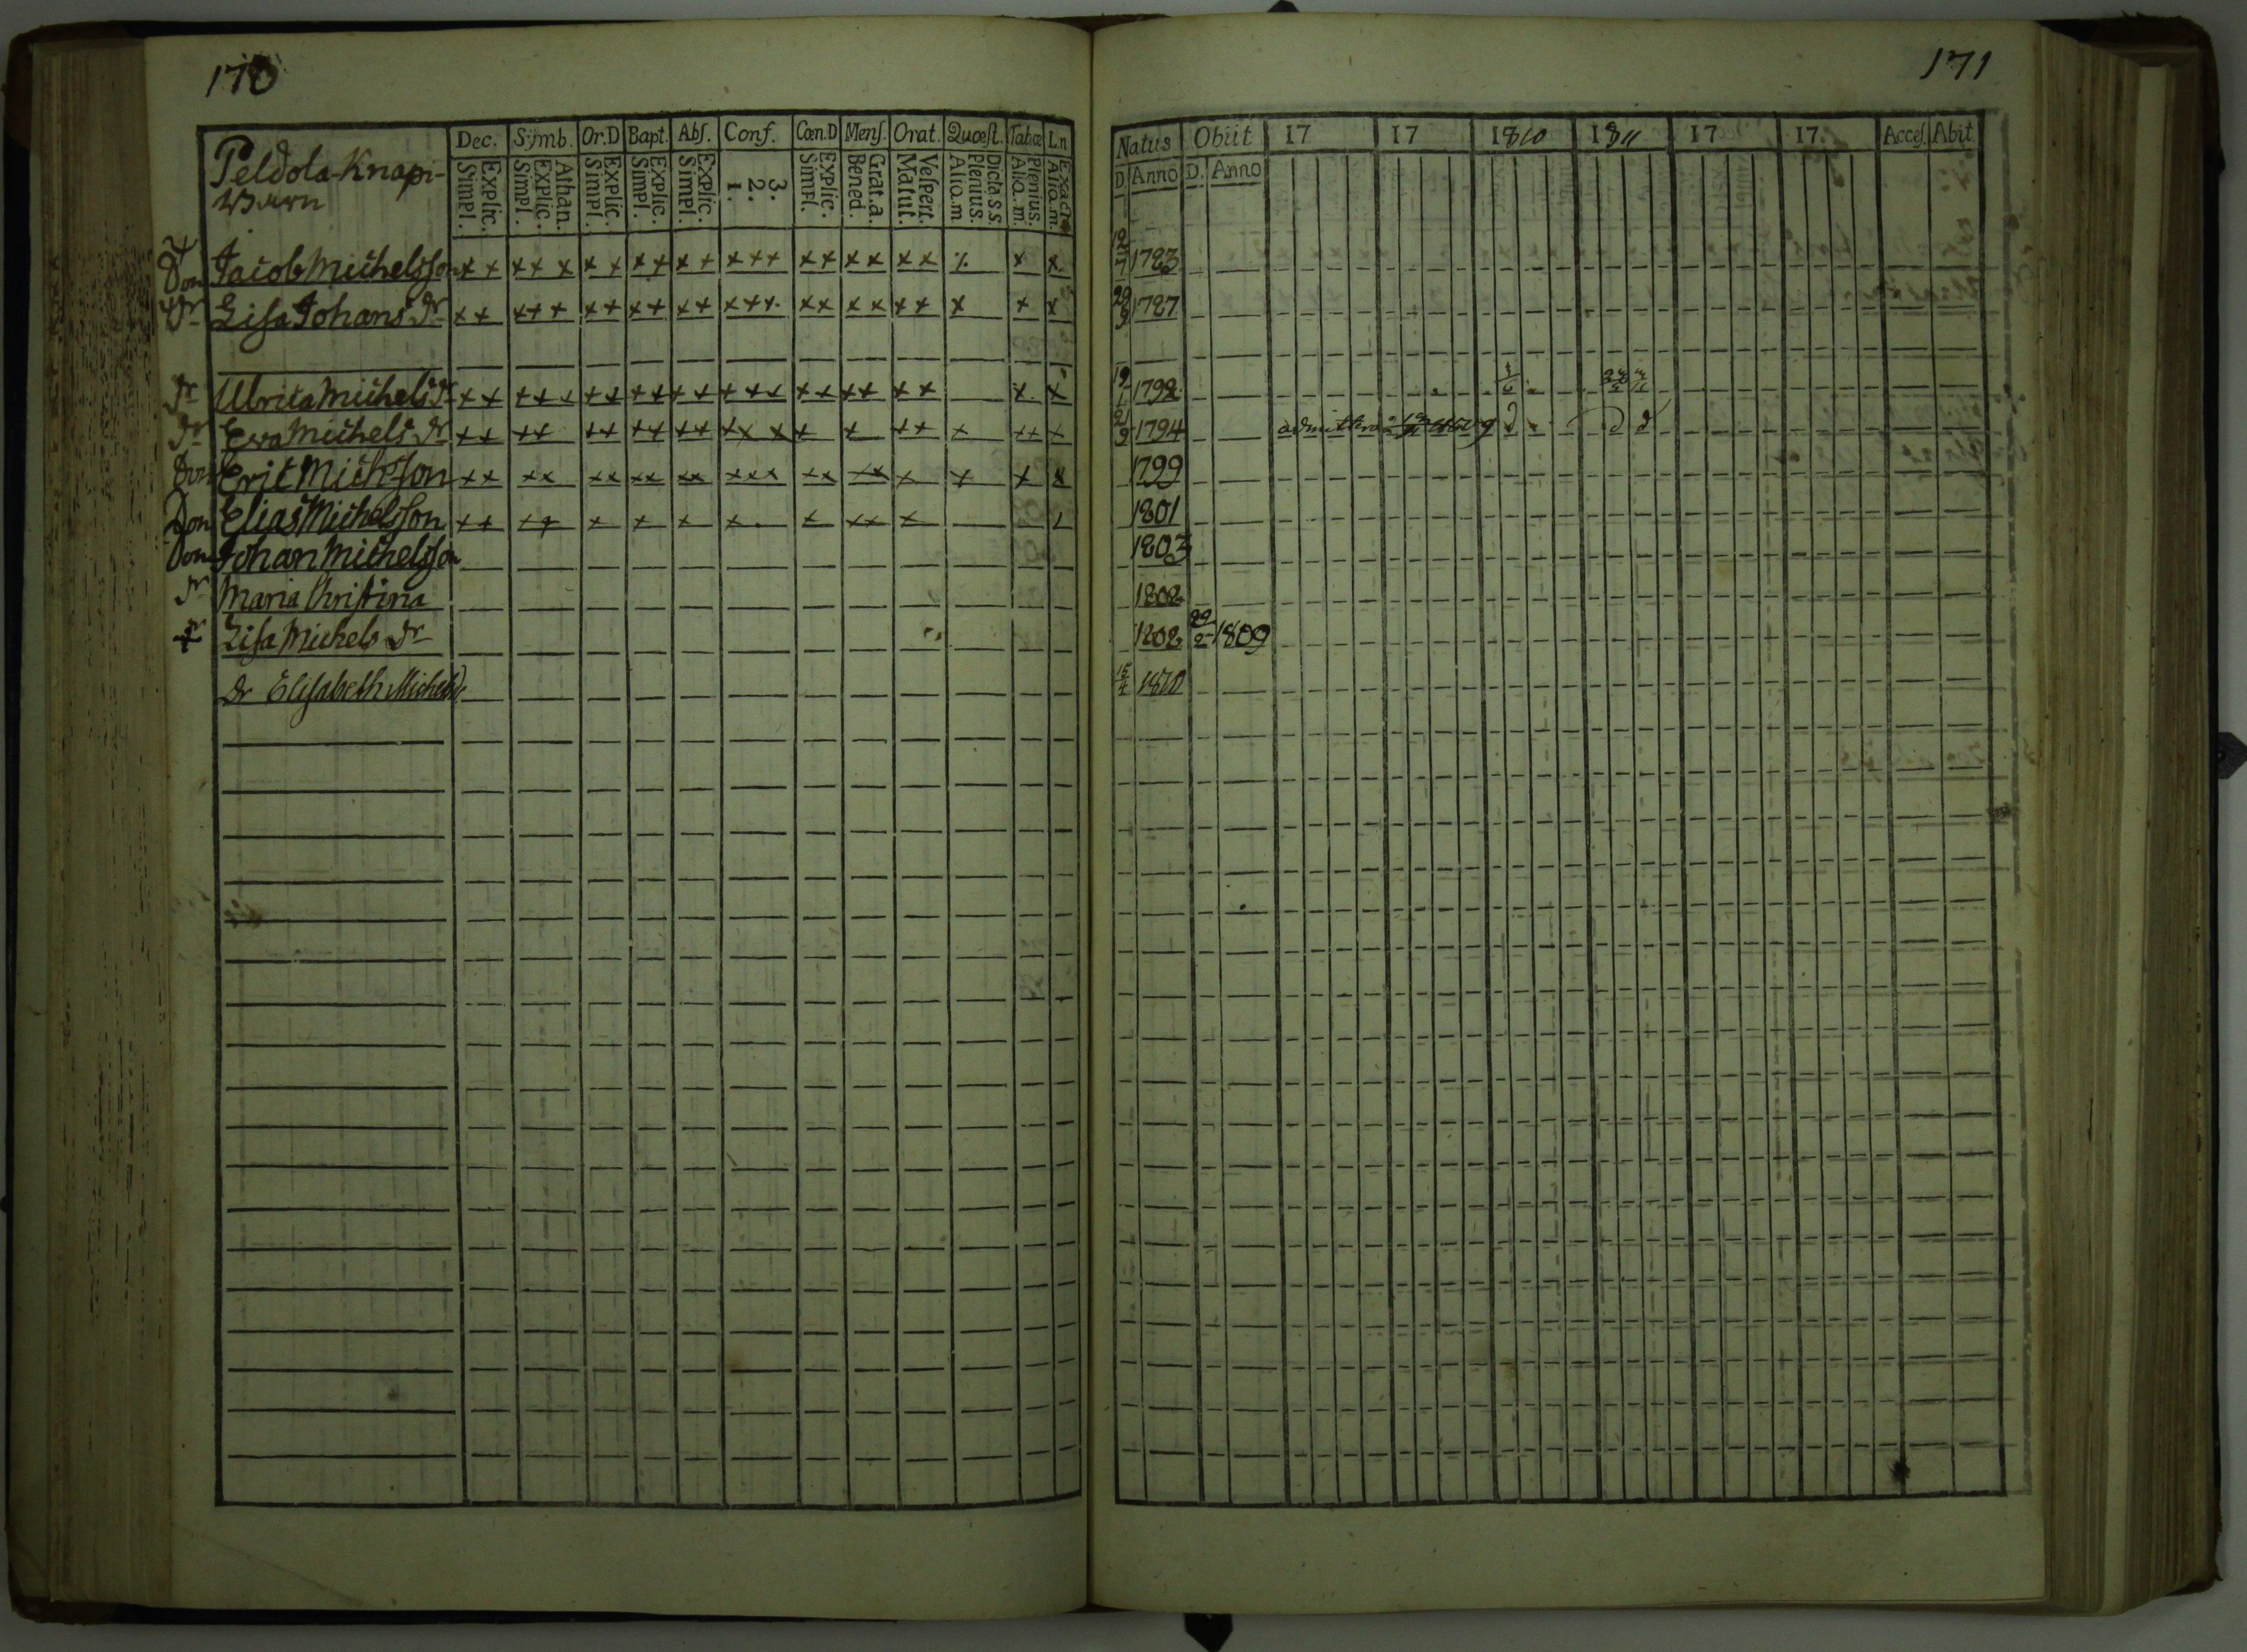 170
Peldola-Knapi-
Barn
Dec. Symb. Or.D Bapt. Abſ. Conf. Cœn.D Menſ. Orat. Quœſt. Tab.œ L.n
Explic. Simpl. Athan. Explic. Simpl. Explic. Simpl. Explic. Simpl. Explic. Simpl. 3. 2. 1. Explic. Simpl. Grat.a. Bened. Veſpert. Matut. Dicta s.s. Plenius. Aliq.m Plenius. Aliq.m. Exacte Aliq.m.
Son Jacob Michelsson x x x x x x x x x x x x x x x x x x x x x ⁒ x x
Dr Lisa Johans Dr x x x x x x x x x x x x x x x x x x x x x x x x
Dr Ulrica Michels Dr x x x x x x x x x x x x x x x x x x x x x x x
Dr Eva Michels Dr x x x x x x x x x x x x x x x x x x x x x x
Son Eric Michsson x x x x x x x x x x x x x x x x x x x x x
Son Elias Michelsson x x x x x x x x x x x x
Son Johan Michelsson
Dr Maria Christina
Dr Lisa Michels Dr
Dr Elisabeth Michelsdr
171
Natus Obiit 17 17 1810 1811 17 17. Acceſ. Abit
D. Anno D. Anno
1783
1787
19/1 1792
21/9 1794
1799
1801
1803
1808
1808 22/2 1809
15/4 1810